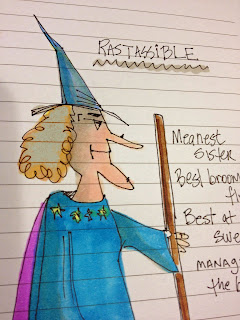 RASTASSIBLE
Meanest
sister
Best broom
fl
Best at
swe
MANAG
the b